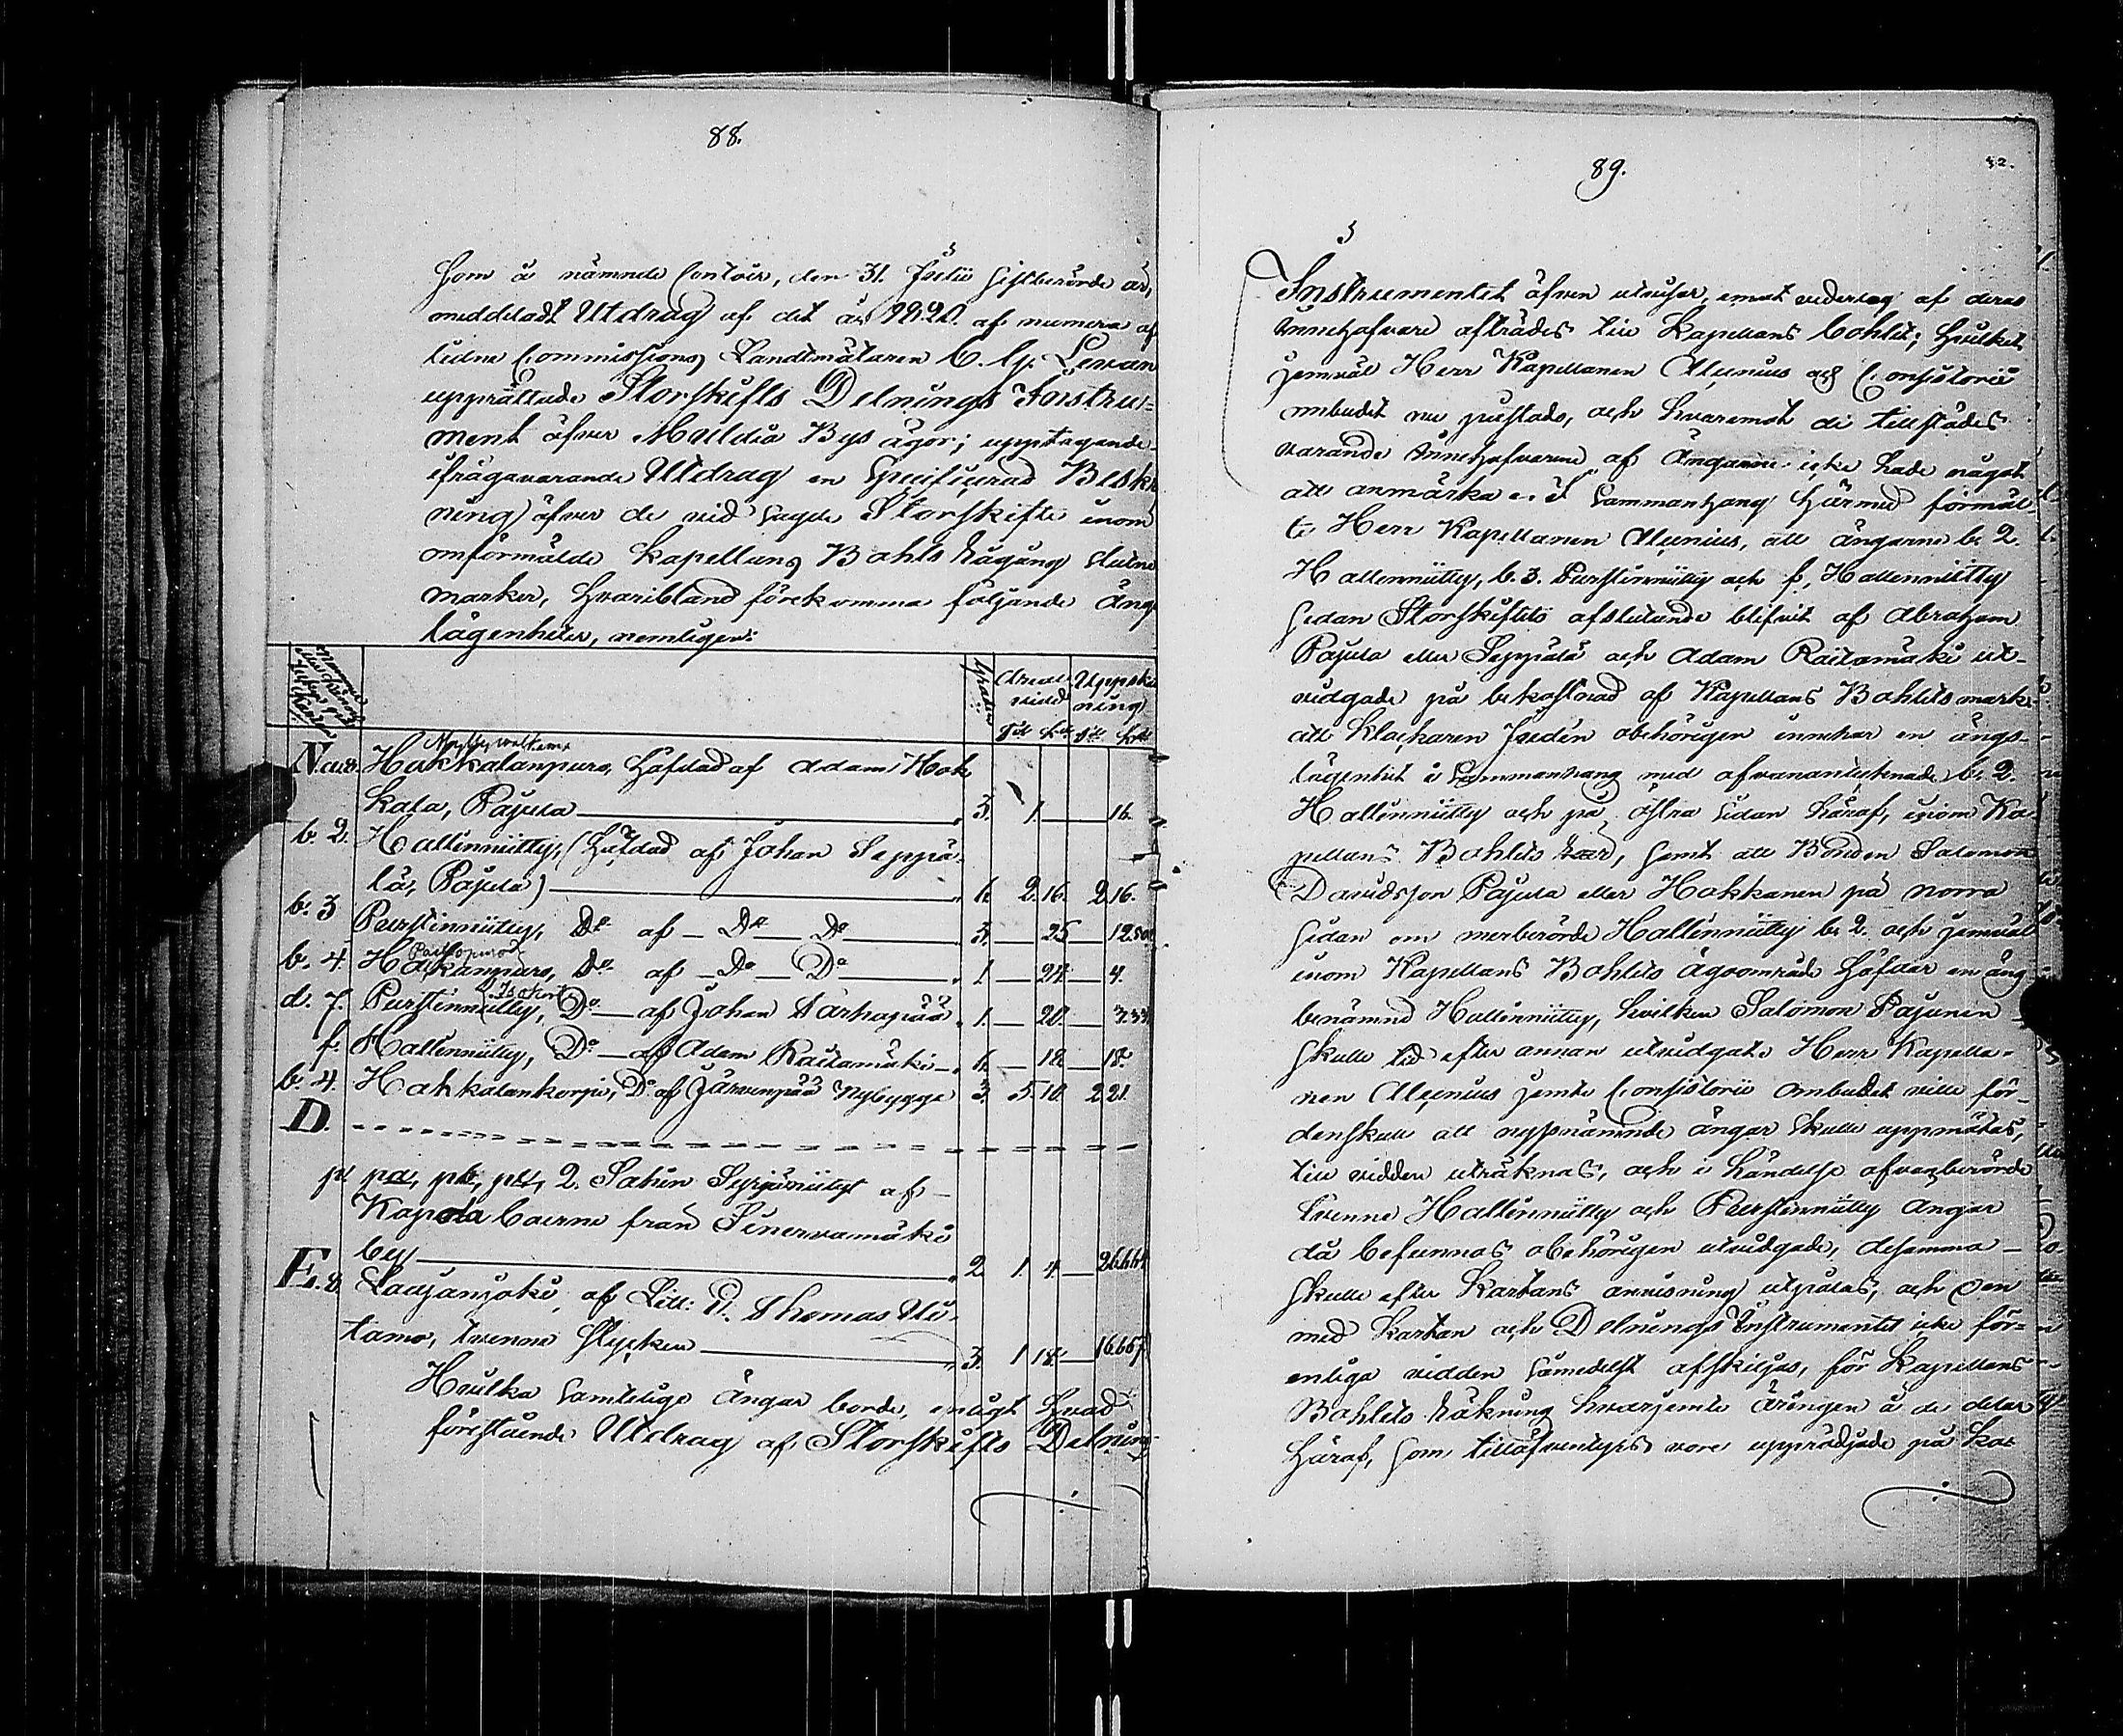 88.
som å nämnde Contoir, den 31. Julii sistberörde år,
meddeladt Utdrag af det år af numera af
lidne Commissions Landtmätaren C. G. Levan
upprättade Storskifts Delnings Instru-
ment öfver Muldia Bys ägor; upptagande
ifrågavarande Utdrag en Specificerad Beskr
ning öfver de vid sagde Storskifte inom
omförmälde Kapellans Bohls hägång slutne
marker, hvaribland förekomma följande Ängs
lägenheter, nemligen:
Graden Areal vidd Uppskattning
Tll Kll Tll Kll
N. Hakkalanpuro, Häfdad af Adam Hak
kala, Pajula 3. 1. 16.
b. 2. Hallinniitty, (Häfdad af Johan Seppä-
lä, Pajula) 6. 2. 16. 2 16.
b. 3 Purstinniitty, Do af Do Do 3. 25 12.500
b. 4. Hakanpuro, Do af Do Do 1. 24 4.
d. 7. Purstinniitty, Do af Johan Tarhapää 1. 20. 3.33
f. Hallinniitty, Do af Adam Raitamäki 6. 18 18.
b. 4. Hakkalankorpi, Do af Järvenpää Nybygge 3. 5. 10. 2 21.
D.
p. pa, pb, pc, 2. Sahin Seppiniityt af
Kapola boerne från Sinervamäki
by 2. 1. 4. 26.664
E. 8 Laujanjoki, af Litt: P. Thomas Uu-
tamo, tvenne stycken 3. 1 18. 16.667
Hvilka samtelige Ängar borde, enligt hvad
förestående Utdrag af Storskifts Delnings
89.
Instrumentet äfven utviser, emot vederlag af deras
Innehafvare afträdes till Kapellans bohlet; hvilket
jemväl Herr Kapellanen Alcenius och Consistorii
ombudet nu yrkade, och hvaremot de tillstädes
varande Innehafvarne af Ängarne icke hade något
att anmärka. I sammanhang härmed förmäl-
te Herr Kapellanen Alcenius, att ängarne b. 2.
Hallinniitty, b. 3. Purstinniitty och f, Hallinniitty
sedan Storskiftets afslutande blifvit af Abraham
Pajula eller Seppälä och Adam Raitamäki ut-
vidgade på bekostnad af Kapellans Bohlets mark
att Klockaren Fredén obehörigen innehar en ängs-
lägenhet i sammanhang med ofvananteknade b. 2.
Hallinniitty och på östra sidan häraf, inom Ka-
pellans Bohlets rår, samt att Bonden Salomon
Davidsson Pajula eller Hakkanen på norra
sidan om merberörde Hallinniitty b. 2. och jemväl
inom Kapellans Bohlets ägoområde häfdar en äng
benämnd Hallinniitty, hvilken Salomon Pajunen
skulle tid efter annan utvidgat. Herr Kapella-
nen Alcenius jemte Consistorii ombudet ville för-
denskull att nyssnämnde ängar skulle uppmätas,
till vidden uträknas, och i händelse ofvanberörde
tvenne Hallinniitty och Purstinniitty Ängar
då befunnos obehörigen utvidgade, desamma
skulle efter Kartans anvisning utpålas, och den
med Kartan och Delnings Instrumentet icke för-
enliga vidden såmedelst afskiljas, för Kapellans
Bohlets räkning hvarjemte äringen å de delar
häraf, som tilläfventyrs vore upprödjade på Ka-